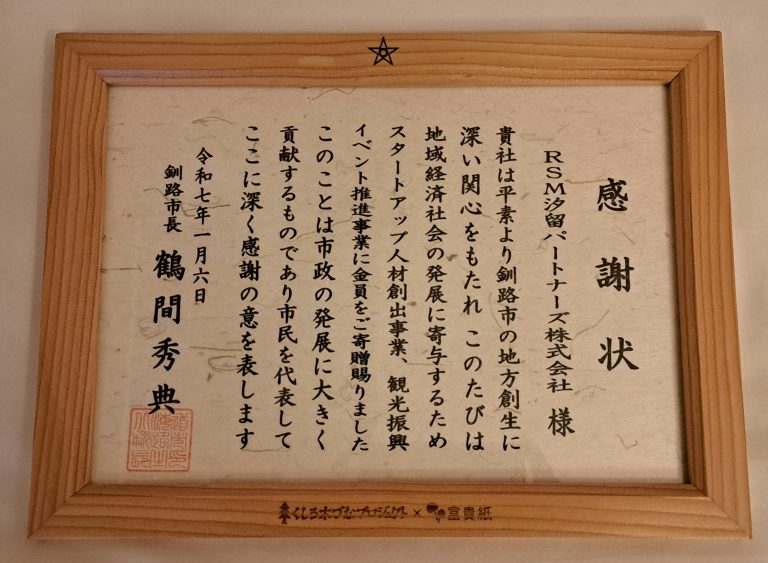 感謝状
RSM汐留パートナーズ株式会社 様
貴社は平素より釧路市の地方創生に
深い関心をもたれ このたびは
地域経済社会の発展に寄与するため
スタートアップ人材創出事業、観光振興
イベント推進事業に金員をご寄贈賜りました
このことは市政の発展に大きく
貢献するものであり市民を代表して
ここに深く感謝の意を表します
令和七年一月六日
釧路市長 鶴間秀典
くしろ木づなプロジェクト × 富貴紙